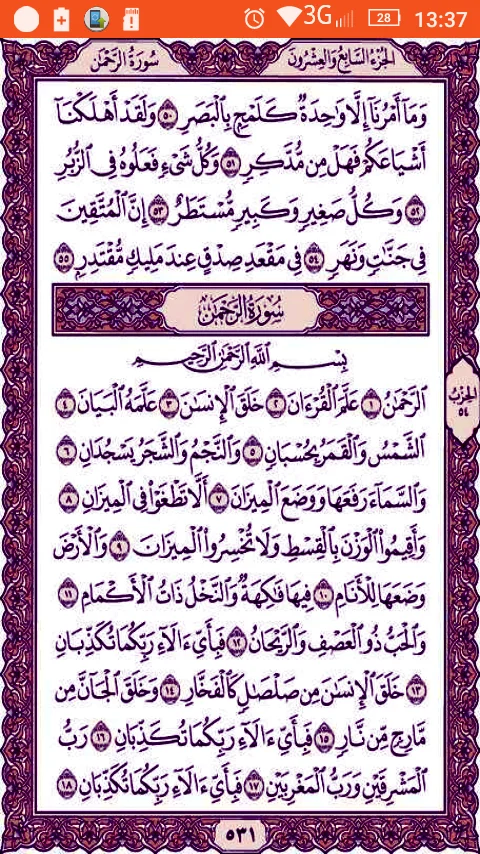 3G 28 13:37
سُورَةُ الرَّحْمَٰن الجُزءُ السَّابِعُ وَالعِشْرُونَ
وَمَآ أَمْرُنَآ إِلَّا وَٰحِدَةٌ كَلَمْحٍۭ بِٱلْبَصَرِ ٥٠ وَلَقَدْ أَهْلَكْنَآ
أَشْيَاعَكُمْ فَهَلْ مِن مُّدَّكِرٍ ٥١ وَكُلُّ شَىْءٍ فَعَلُوهُ فِى ٱلزُّبُرِ
٥٢ وَكُلُّ صَغِيرٍ وَكَبِيرٍ مُّسْتَطَرٌ ٥٣ إِنَّ ٱلْمُتَّقِينَ
فِى جَنَّٰتٍ وَنَهَرٍ ٥٤ فِى مَقْعَدِ صِدْقٍ عِندَ مَلِيكٍ مُّقْتَدِرٍۭ ٥٥
سُورَةُ الرَّحْمَٰن
بِسْمِ ٱللَّهِ ٱلرَّحْمَٰنِ ٱلرَّحِيمِ
ٱلرَّحْمَٰنُ ١ عَلَّمَ ٱلْقُرْءَانَ ٢ خَلَقَ ٱلْإِنسَٰنَ ٣ عَلَّمَهُ ٱلْبَيَانَ ٤
الحِزْبُ ٥٤
ٱلشَّمْسُ وَٱلْقَمَرُ بِحُسْبَانٍ ٥ وَٱلنَّجْمُ وَٱلشَّجَرُ يَسْجُدَانِ ٦
وَٱلسَّمَآءَ رَفَعَهَا وَوَضَعَ ٱلْمِيزَانَ ٧ أَلَّا تَطْغَوْا۟ فِى ٱلْمِيزَانِ ٨
وَأَقِيمُوا۟ ٱلْوَزْنَ بِٱلْقِسْطِ وَلَا تُخْسِرُوا۟ ٱلْمِيزَانَ ٩ وَٱلْأَرْضَ
وَضَعَهَا لِلْأَنَامِ ١٠ فِيهَا فَٰكِهَةٌ وَٱلنَّخْلُ ذَاتُ ٱلْأَكْمَامِ ١١
وَٱلْحَبُّ ذُو ٱلْعَصْفِ وَٱلرَّيْحَانُ ١٢ فَبِأَىِّ ءَالَآءِ رَبِّكُمَا تُكَذِّبَانِ
١٣ خَلَقَ ٱلْإِنسَٰنَ مِن صَلْصَٰلٍ كَٱلْفَخَّارِ ١٤ وَخَلَقَ ٱلْجَآنَّ مِن
مَّارِجٍ مِّن نَّارٍ ١٥ فَبِأَىِّ ءَالَآءِ رَبِّكُمَا تُكَذِّبَانِ ١٦ رَبُّ
ٱلْمَشْرِقَيْنِ وَرَبُّ ٱلْمَغْرِبَيْنِ ١٧ فَبِأَىِّ ءَالَآءِ رَبِّكُمَا تُكَذِّبَانِ ١٨
٥٣١